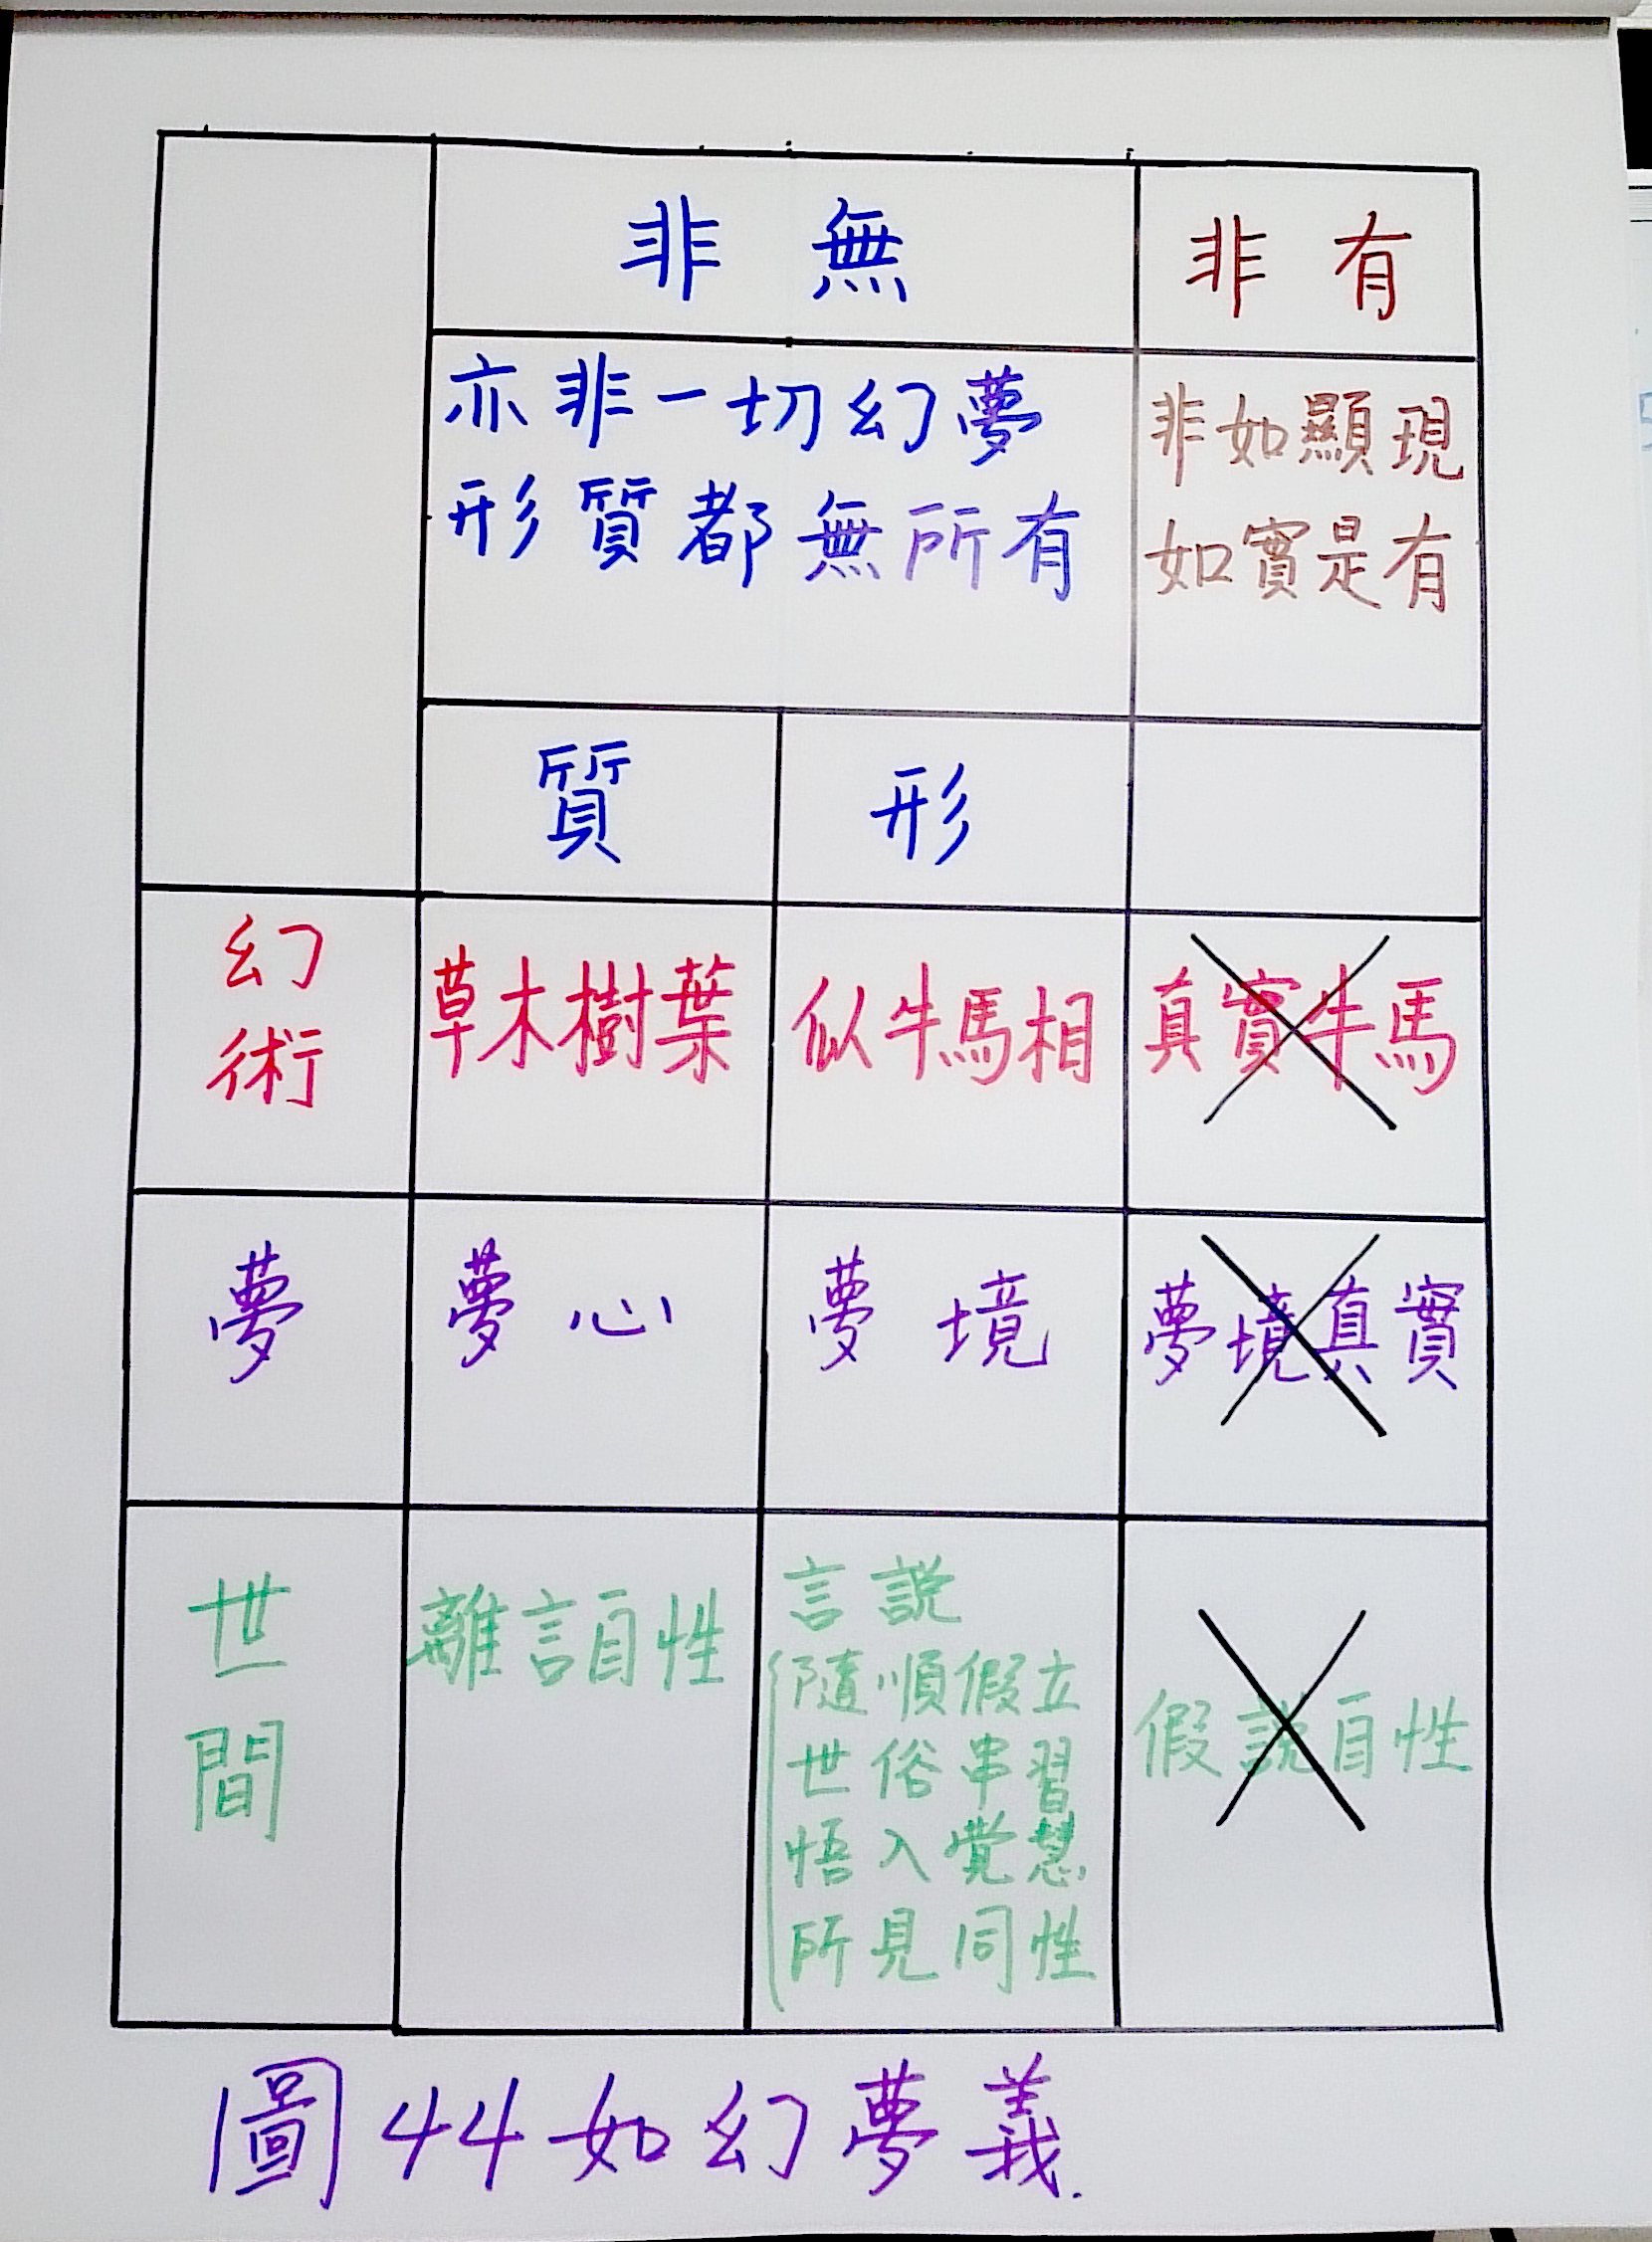 非無
非有
亦非一切幻夢
形質都無所有
非如顯現
如實是有
質
形
幻
術
草木樹葉
似牛馬相
真實牛馬
夢
夢心
夢境
夢境真實
世
間
離言自性
言說
隨順假立
世俗串習
悟入覺慧
所見同性
假說自性
圖44如幻夢義.